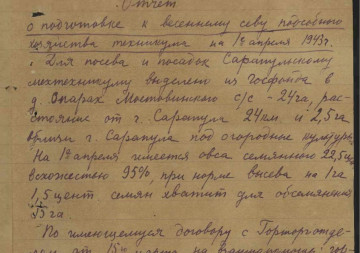 Отчет
о подготовке к весеннему севу подсобного
хозяйства техникума на 1е апреля 1943 г.
Для посева и посадок Сарапульскому
мехтехникуму выделен из госфонда в
д. Опарах Мостовинского с/с - 24 га, рас-
стояние от г. Сарапула 24 км. и 2,5 га
вблизи г. Сарапула под огородные культуры
На 1е апреля имеется овса семянного 22,5 ц
всхожестью 95%, при норме высева на 1 га
1,5 цент семян хватит для обсеменения
15 га
По имеющемуся договору с Горторготде-
лом от 15 марта на